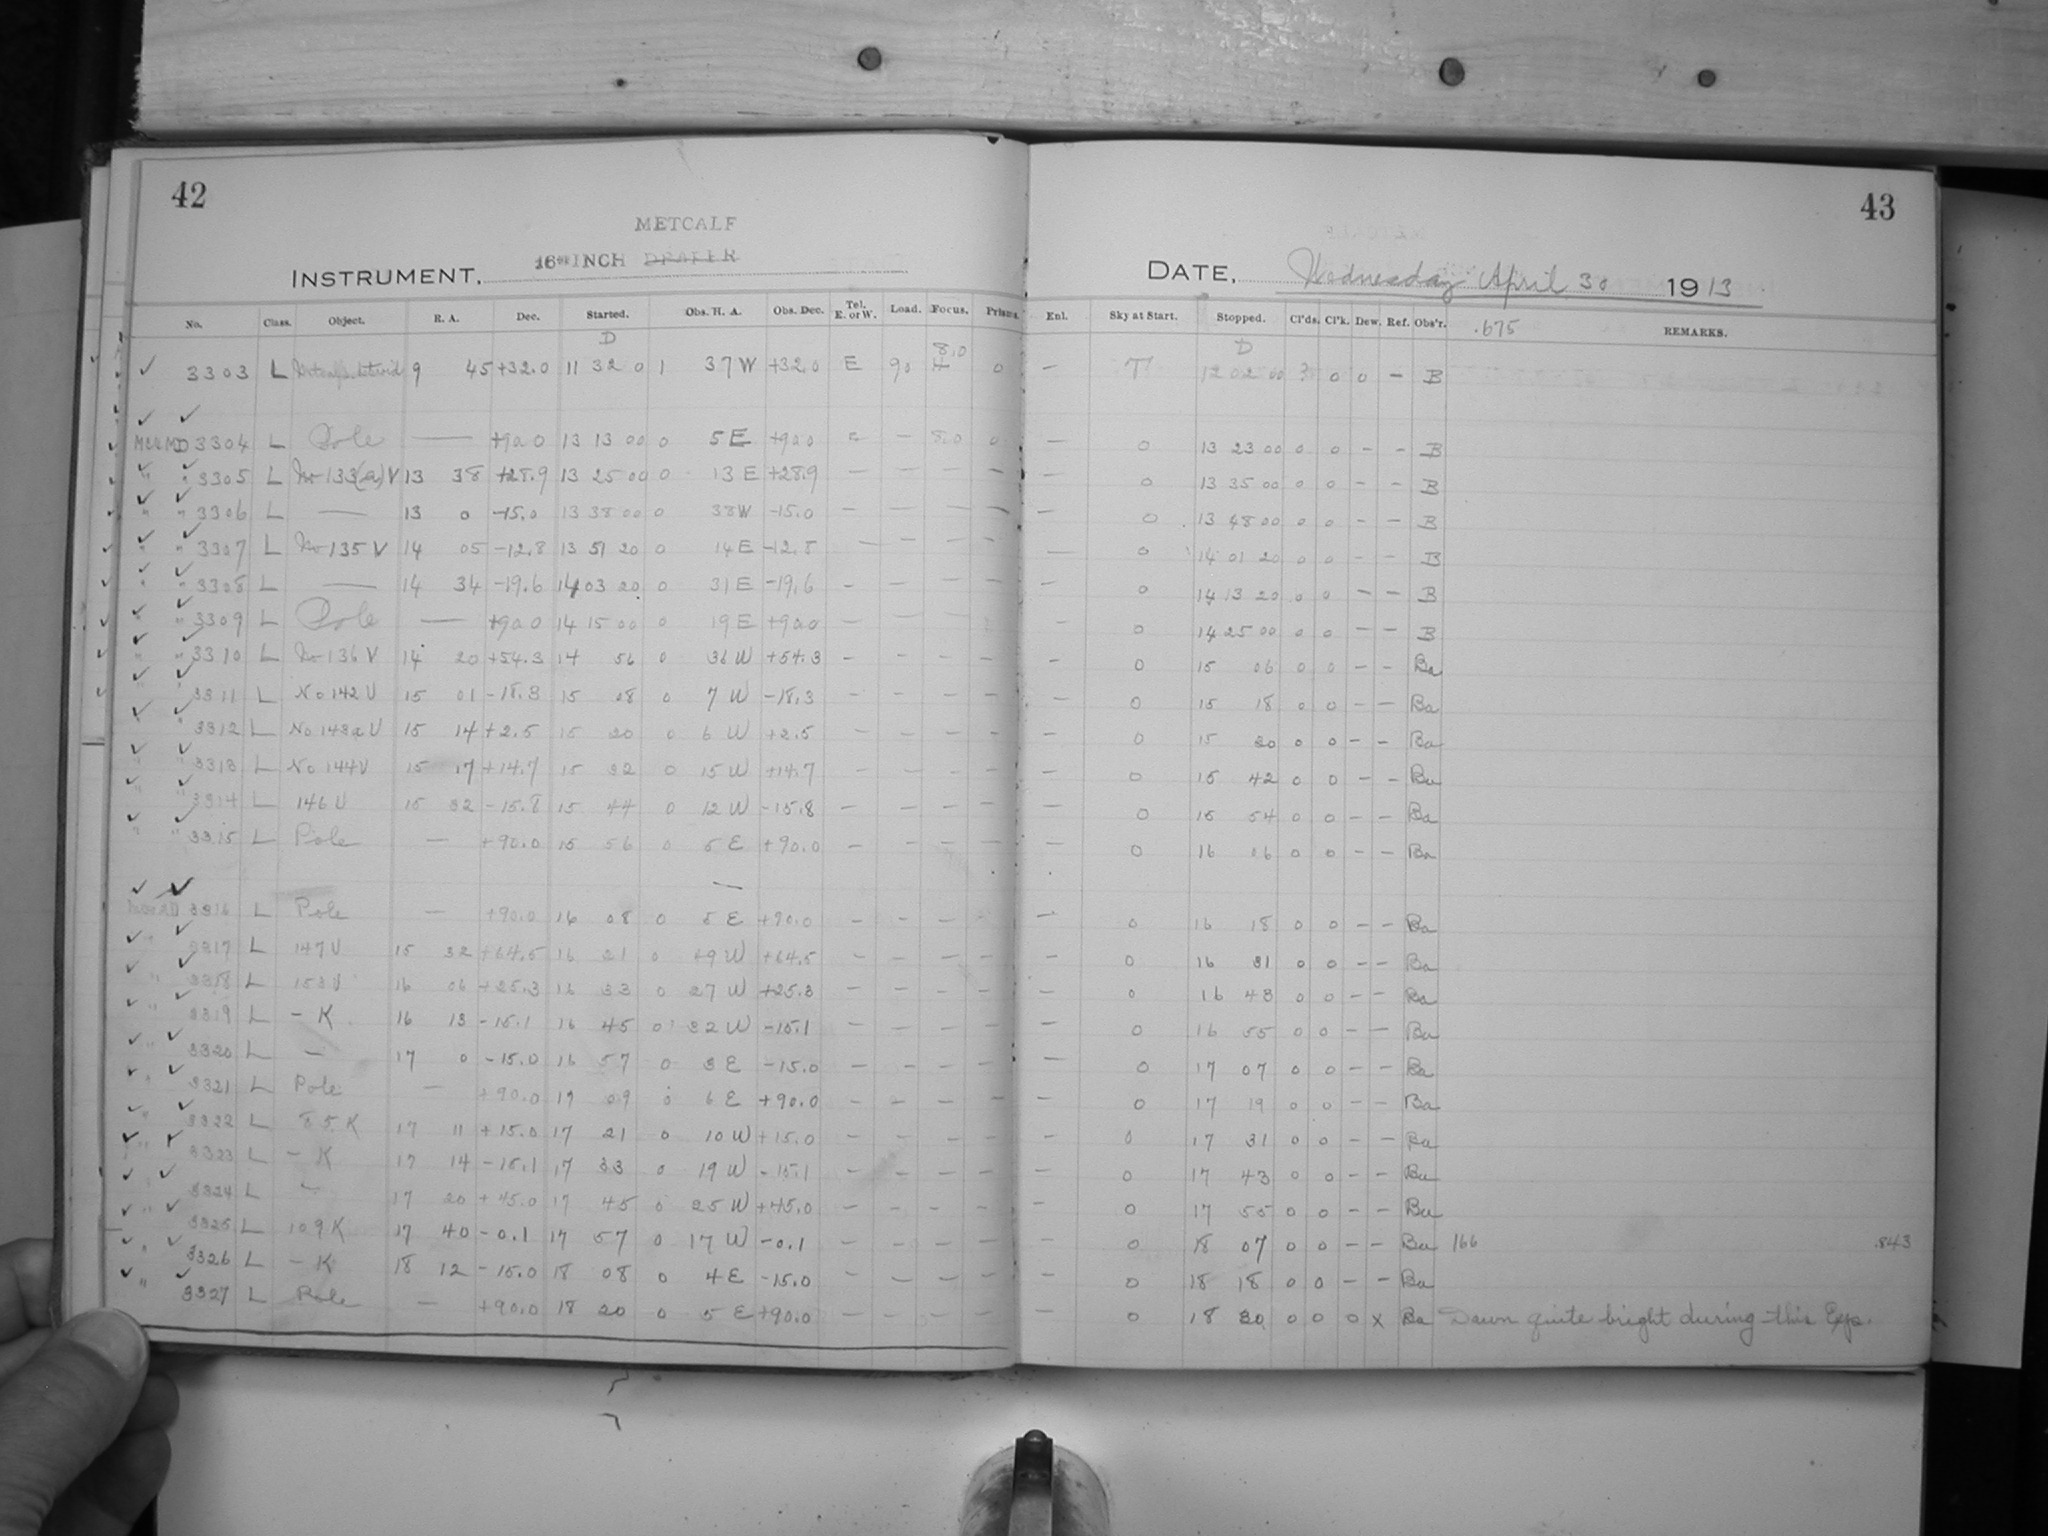 42
METCALF
INSTRUMENT, 16 INCH DRAPER
No. Class. Object. R. A. Dec. Started. Obs. H. A. Obs. Dec. Tel. E. or W. Load. Focus. Prisms.
D
3303 L 9 45 +32.0 11 32 0 1 37 W +32.0 E 90 8.0 0
3304 L Pole — +90.0 13 13 00 0 5 E +90.0 E — 8.0 0
" " 3305 L No 133(a) V 13 38 +28.9 13 25 00 0 13 E +28.9 — — — —
" " 3306 L — 13 0 -15.0 13 38 00 0 38 W -15.0 — — — —
" " 3307 L No 135 V 14 05 -12.8 13 51 20 0 14 E -12.8 — — — —
" " 3308 L — 14 34 -19.6 14 03 20 0 31 E -19.6 — — — —
" " 3309 L Pole — +90.0 14 15 00 0 19 E +90.0 — — — —
" " 3310 L No 136 V 14 20 +54.3 14 56 0 36 W +54.3 — — — —
" " 3311 L No 142 V 15 01 -18.3 15 08 0 7 W -18.3 — — — —
" " 3312 L No 143a V 15 14 +2.5 15 20 0 6 W +2.5 — — — —
" " 3313 L No 144 V 15 17 +14.7 15 32 0 15 W +14.7 — — — —
" " 3314 L 146 V 15 32 -15.8 15 44 0 12 W -15.8 — — — —
" " 3315 L Pole — +90.0 15 56 0 5 E +90.0 — — — —
—
3316 L Pole — +90.0 16 08 0 5 E +90.0 — — — —
" 3317 L 147 V 15 32 +64.5 16 21 0 49 W +64.5 — — — —
" 3318 L 153 V 16 06 +25.3 16 33 0 27 W +25.3 — — — —
" 3319 L — K 16 13 -15.1 16 45 0 32 W -15.1 — — — —
" 3320 L — 17 0 -15.0 16 57 0 3 E -15.0 — — — —
" 3321 L Pole — +90.0 17 09 0 6 E +90.0 — — — —
" 3322 L 85 K 17 11 +15.0 17 21 0 10 W +15.0 — — — —
" 3323 L — K 17 14 -15.1 17 33 0 19 W -15.1 — — — —
3324 L — 17 20 +45.0 17 45 0 25 W +45.0 — — — —
" 3325 L 109 K 17 40 -0.1 17 57 0 17 W -0.1 — — — —
" 3326 L — K 18 12 -15.0 18 08 0 4 E -15.0 — — — —
" 3327 L Pole — +90.0 18 20 0 5 E +90.0 — — — —
43
DATE, Wednesday April 30 1913
Enl. Sky at Start. Stopped. Cl'ds. Cl'k. Dew. Ref. Obs'r. .675 REMARKS.
D
— 12 02 00 0 0 — B
— 0 13 23 00 0 0 — — B
— 0 13 35 00 0 0 — — B
— 0 13 48 00 0 0 — — B
— 0 14 01 20 0 0 — — B
— 0 14 13 20 0 0 — — B
— 0 14 25 00 0 0 — — B
— 0 15 06 0 0 — — Ba
— 0 15 18 0 0 — — Ba
— 0 15 30 0 0 — — Ba
— 0 15 42 0 0 — — Ba
— 0 15 54 0 0 — — Ba
— 0 16 06 0 0 — — Ba
— 0 16 18 0 0 — — Ba
— 0 16 31 0 0 — — Ba
— 0 16 43 0 0 — — Ba
— 0 16 55 0 0 — — Ba
— 0 17 07 0 0 — — Ba
— 0 17 19 0 0 — — Ba
— 0 17 31 0 0 — — Ba
— 0 17 43 0 0 — — Ba
— 0 17 55 0 0 — — Ba
— 0 18 07 0 0 — — Ba 166 .843
— 0 18 18 0 0 — — Ba
— 0 18 30 0 0 0 x Ba Dawn quite bright during this Exp.